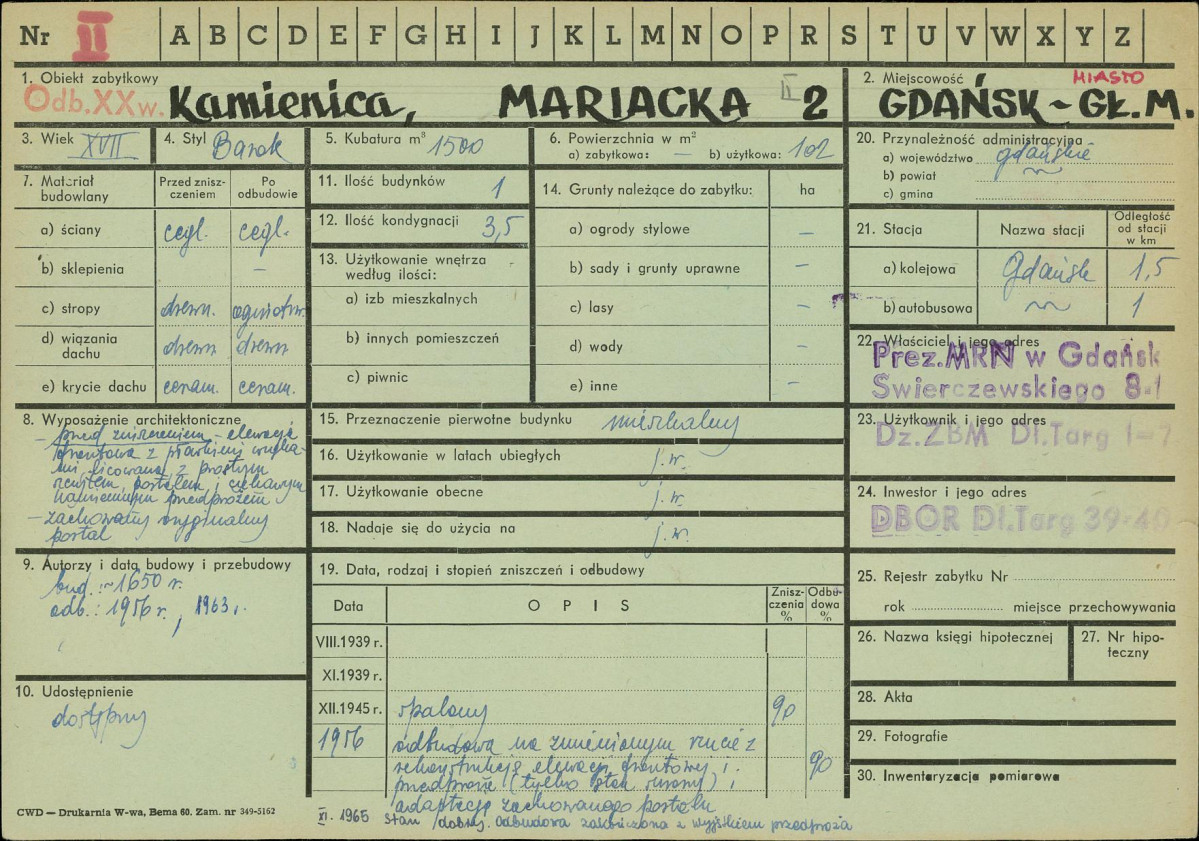 Nr II A B C D E F G H I J K L M N O P R S T U V W X Y Z
1. Obiekt zabytkowy
Odb. XX w. Kamienica, MARIACKA II 2
2. Miejscowość MIASTO
GDAŃSK - GŁ. M.
3. Wiek XVII
4. Styl Barok
5. Kubatura m³ 1500
6. Powierzchnia w m²
a) zabytkowa: — b) użytkowa: 102
20. Przynależność administracyjna
a) województwo gdańskie
b) powiat
c) gmina
7. Materiał budowlany
Przed znisz-
czeniem
Po
odbudowie
a) ściany cegl. cegl.
b) sklepienia —
c) stropy drewn. ogniotrw.
d) wiązania
dachu drewn drewn
e) krycie dachu ceram. ceram.
11. Ilość budynków 1
12. Ilość kondygnacji 3,5
13. Użytkowanie wnętrza
według ilości:
a) izb mieszkalnych
b) innych pomieszczeń
c) piwnic
14. Grunty należące do zabytku: ha
a) ogrody stylowe —
b) sady i grunty uprawne —
c) lasy —
d) wody —
e) inne —
21. Stacja Nazwa stacji
Odległość
od stacji
w km
a) kolejowa Gdańsk 1,5
b) autobusowa 1
22. Właściciel i jego adres
Prez. MRN w Gdańsk
Świerczewskiego 8-1
23. Użytkownik i jego adres
Dz. ZBM Dł. Targ 1-7
24. Inwestor i jego adres
DBOR Dł. Targ 39-40
8. Wyposażenie architektoniczne
— przed zniszczeniem - elewacja
frontowa z płaskimi wnęka-
mi licowana, z prostym
zeństem, portalem i ciekawym
kamiennym przedprożem
— zachowany oryginalny
portal
15. Przeznaczenie pierwotne budynku mieszkalny
16. Użytkowanie w latach ubiegłych j. w.
17. Użytkowanie obecne j. w.
18. Nadaje się do użycia na j. w.
9. Autorzy i data budowy i przebudowy
bud. : ~1650 r.
odb. : 1956 r., 1963 r.
10. Udostępnienie
dostępny
19. Data, rodzaj i stopień zniszczeń i odbudowy
Data OPIS
Znisz-
czenia
%
Odbu-
dowa
%
VIII.1939 r.
XI.1939 r.
XII.1945 r. spalony 90
1956 odbudowa na zmienionym rzucie z
rekonstrukcją elewacji frontowej i 90
przedproże (tylko stan surowy) i
adaptacją zachowanego portalu
XI. 1965 stan dobry. Odbudowa zakończona z wyjątkiem przedproża
25. Rejestr zabytku Nr
rok miejsce przechowywania
26. Nazwa księgi hipotecznej
27. Nr hipo-
teczny
28. Akta
29. Fotografie
30. Inwentaryzacja pomiarowa
CWD — Drukarnia W-wa, Bema 60. Zam. nr 349-5162